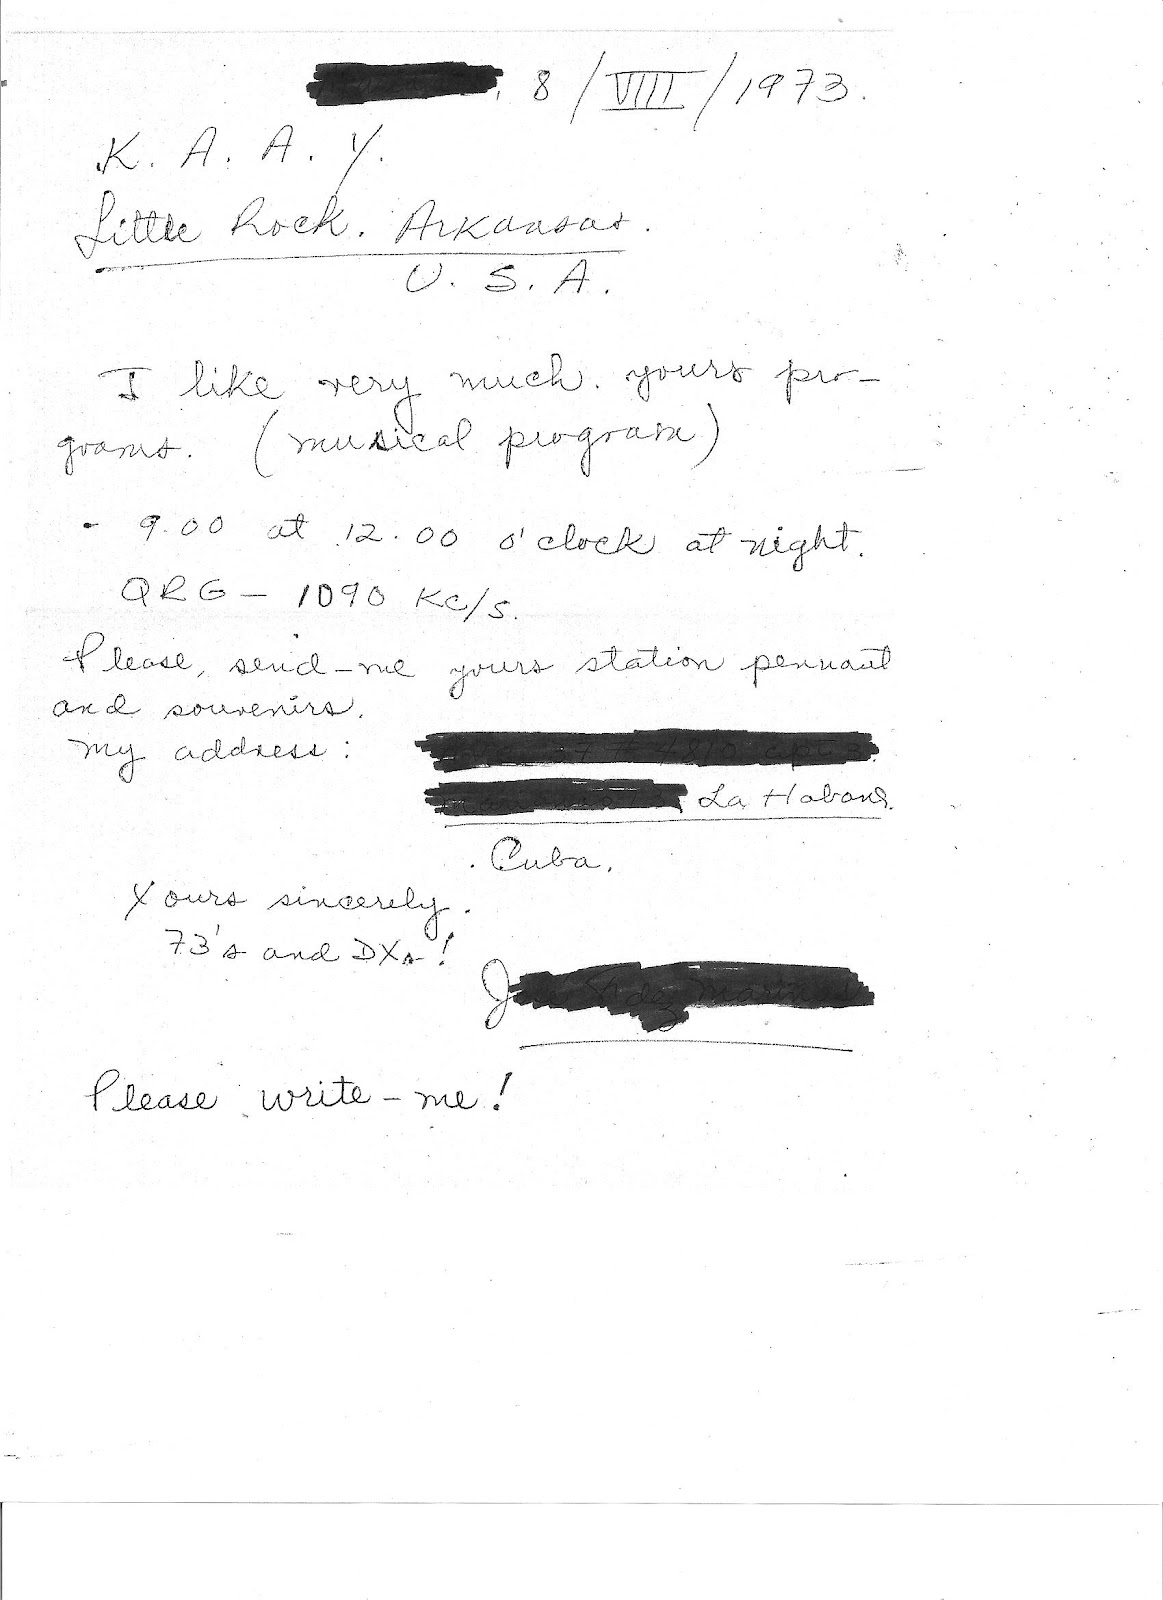 , 8/VIII/1973.
K. A. A. Y.
Little Rock. Arkansas.
U. S. A.
I like very much. yours pro-
grams. (musical program)
- 9.00 at 12.00 o'clock at night.
QRG - 1090 Kc/s.
Please, send-me yours station pennant
and souvenirs.
My address:
La Habana.
Cuba.
Yours sincerely.
73's and DXs!
Please write-me!